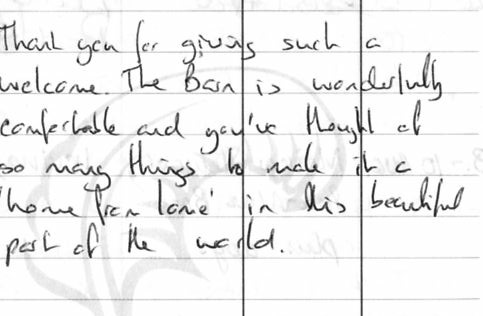 Thank you for giving such a
welcome. The Barn is wonderfully
comfortable and you've thought of
so many things to make it a
'home from home' in this beautiful
part of the world.